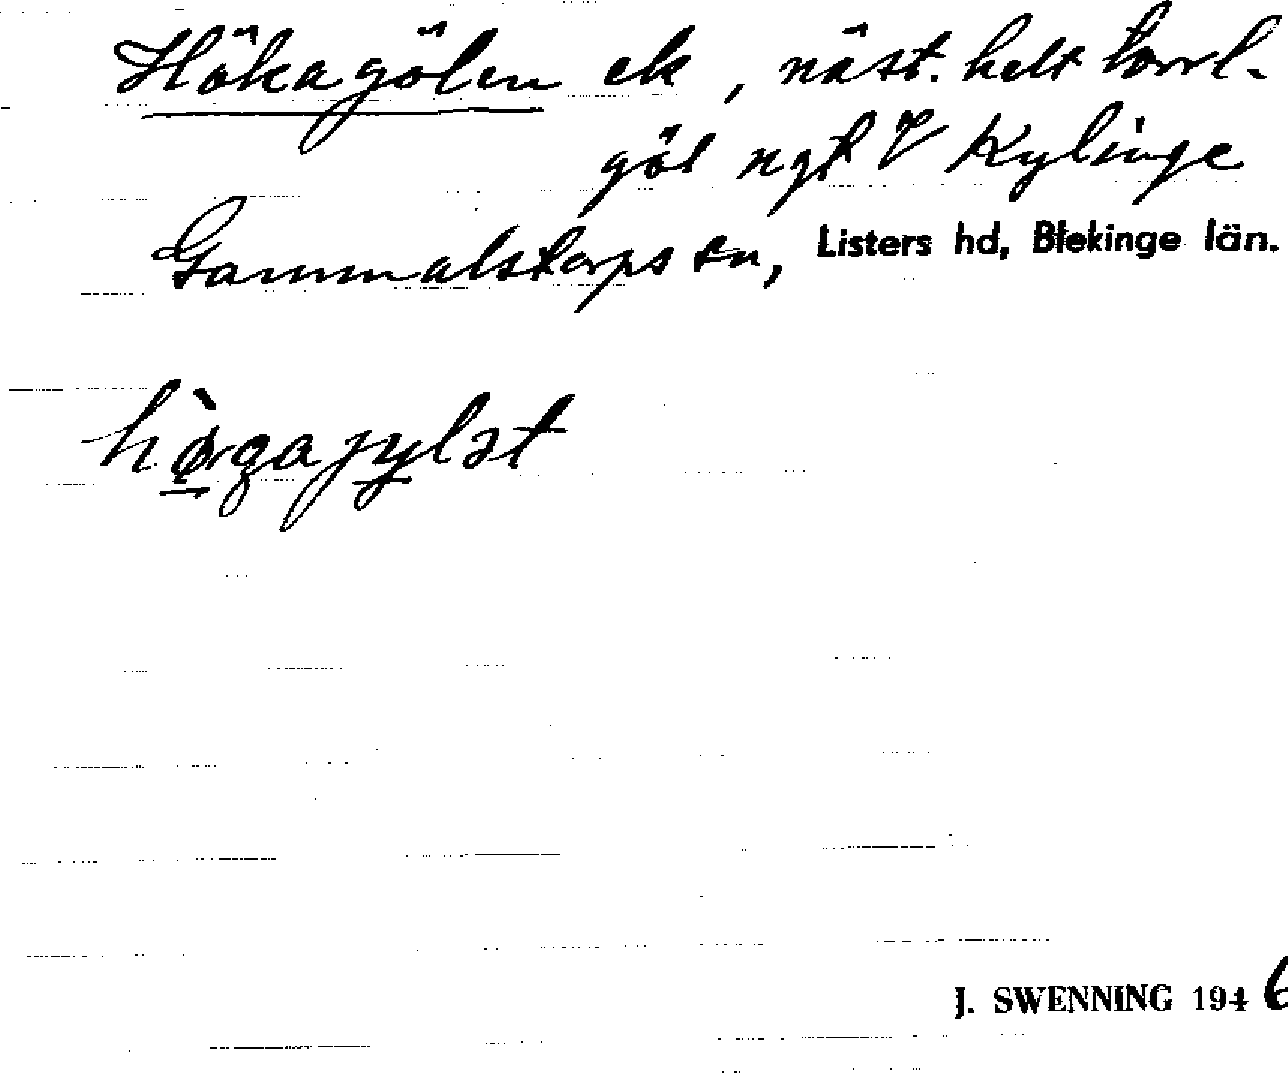 Hökagölen ek, näst. helt torrl.
göl ngt V Kylinge
Gammalstorps sn, Listers hd, Blekinge län.
J. SWENNING 1946